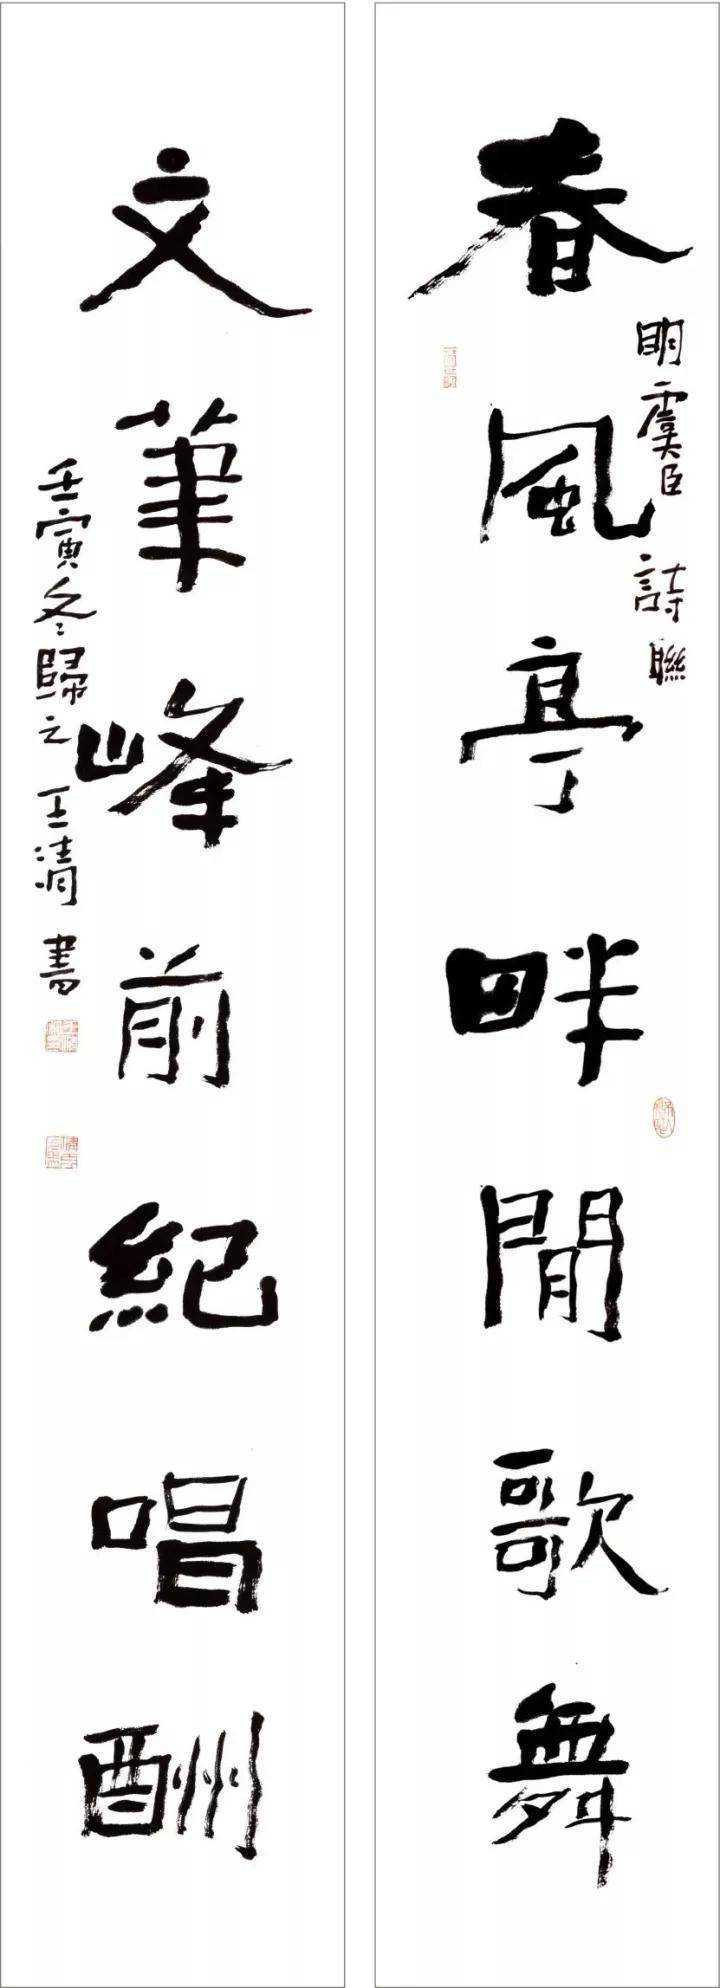 春風亭畔閒歌舞
明虞臣詩聯
文筆峰前紀唱酬
壬寅冬歸之王清書